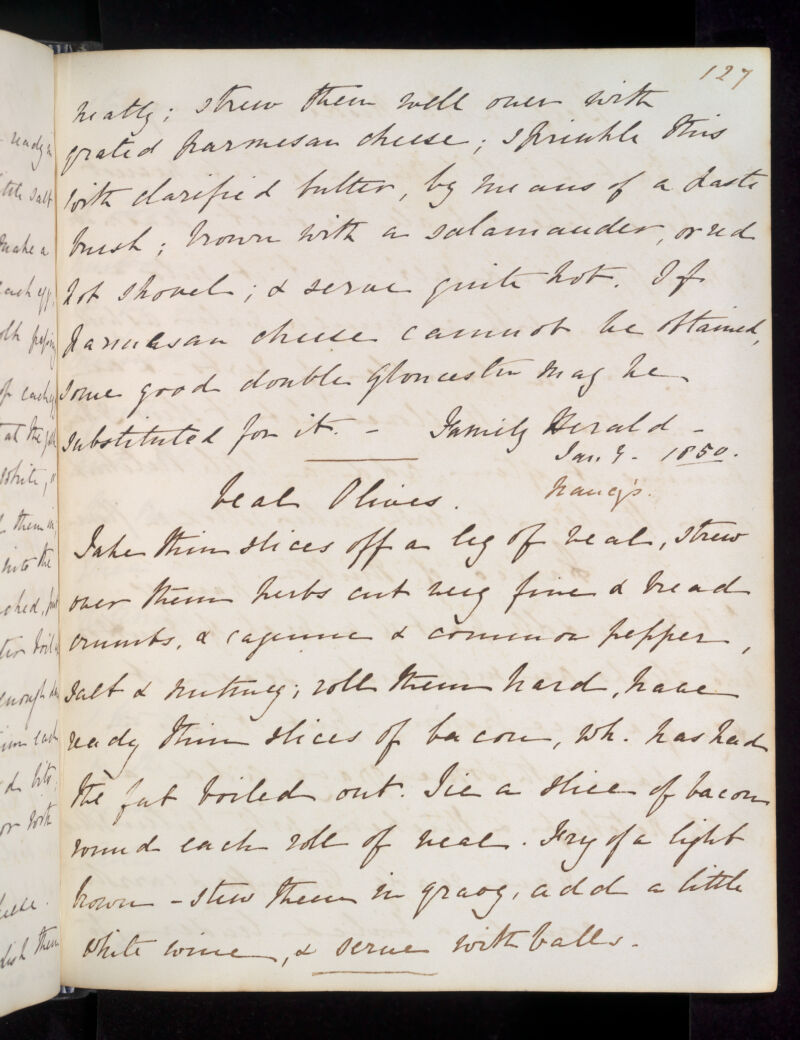 127
neatly; strew them well over with
grated parmesan cheese; sprinkle this
with clarified butter, by means of a paste
brush; brown with a salamander, or red
hot shovel; & serve quite hot. If
parmesan cheese cannot be obtained,
some good double Gloucester may be
substituted for it. - Family Herald -
Jan. 9. 1850.
Veal Olives. Nancy's.
Take thin slices off a leg of veal, strew
over them herbs cut very fine & bread
crumbs, & cayenne & common pepper,
salt & nutmeg; roll them hard, have
ready thin slices of bacon, wh. has had
the fat boiled out. Tie a slice of bacon
round each roll of veal. Fry of a light
brown - stew them in gravy, add a little
white wine, & serve with balls.
ready
little salt
make a
each egg,
of each
at the
white,
them in
into the
enough
each
bits,
or
cheese.
dish them